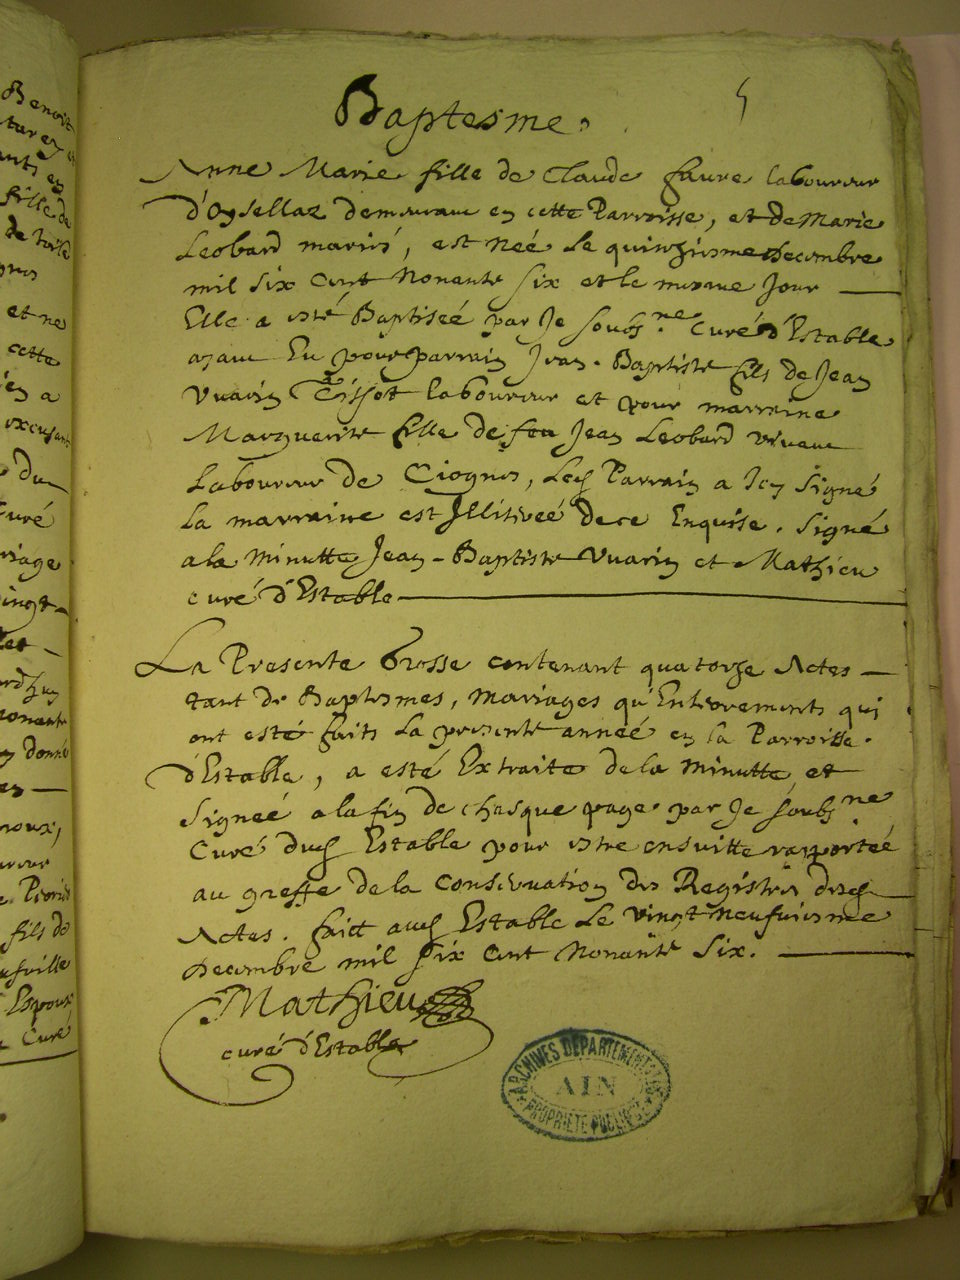 Baptesme.
5
Anne Marie fille de Claude faure laboureur
d'Oysellaz demeurant en cette Parroisse, et de Marie
Leobard mariés, est née le quinziesme decembre
mil six cent Nonante six et le mesme Jour
Elle a esté Baptiseé par Je soubs.ne Curé d'Estable
ayant Eu pour parrain Jean-Baptiste fils de Jean
Vuarin Tissot laboureur et pour marraine
Marguerite fille de feu Jean Leobard vivant
Laboureur de Ciognes, led Parrain a Icy signé
La marraine est Illitereé de ce Enquise. Signé
a la Minutte Jean-Baptiste Vuarin et Mathieu
curé d'Estable
La Presente Grosse contenant quatorze Actes
tant de Baptesmes, Mariages qu'Enterrements qui
ont esté faits La presente anneé en la Parroisse
d'Estable, a esté Extraite de la Minutte et
signeé a la fin de chasque page par Je soubs.ne
Curé dud Estable pour estre ensuitte rapporteé
au greffe de la Conservation des Registres desd
Actes. faict aud Estable Le vingt neufviesme
decembre mil six cent Nonante Six.
Mathieu
curé d'Estable
ARCHIVES DEPARTEMENTALES
AIN
PROPRIETE PUBLIQUE
Benoit
fille de
et ne
cette
a
du
Curé
donné
fils de
Espoux
Curé